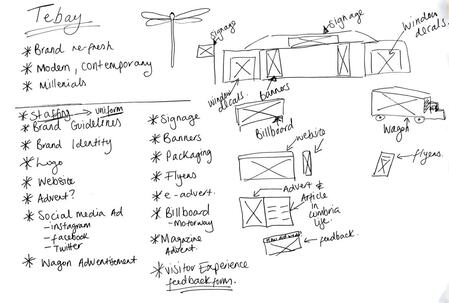 Tebay
* Brand re-fresh
* Modern, contemporary
* Millenials
* Staffing → uniform
* Brand Guidelines
* Brand Identity
* Logo
* Website
* Advent?
* Social media Ad
- instagram
- facebook
- Twitter
* Wagon Advertisement
* Signage
* Banners
* Packaging
* Flyers
* e-advert.
* Billboard
- Motorway
* Magazine
Advert.
* visitor Experience
feedback form.
signage
signage
window
decals.
window
decals.
banners
Billboard
website
Wagon
flyers.
Advert &
Article
in
Cumbria
Life.
feedback.